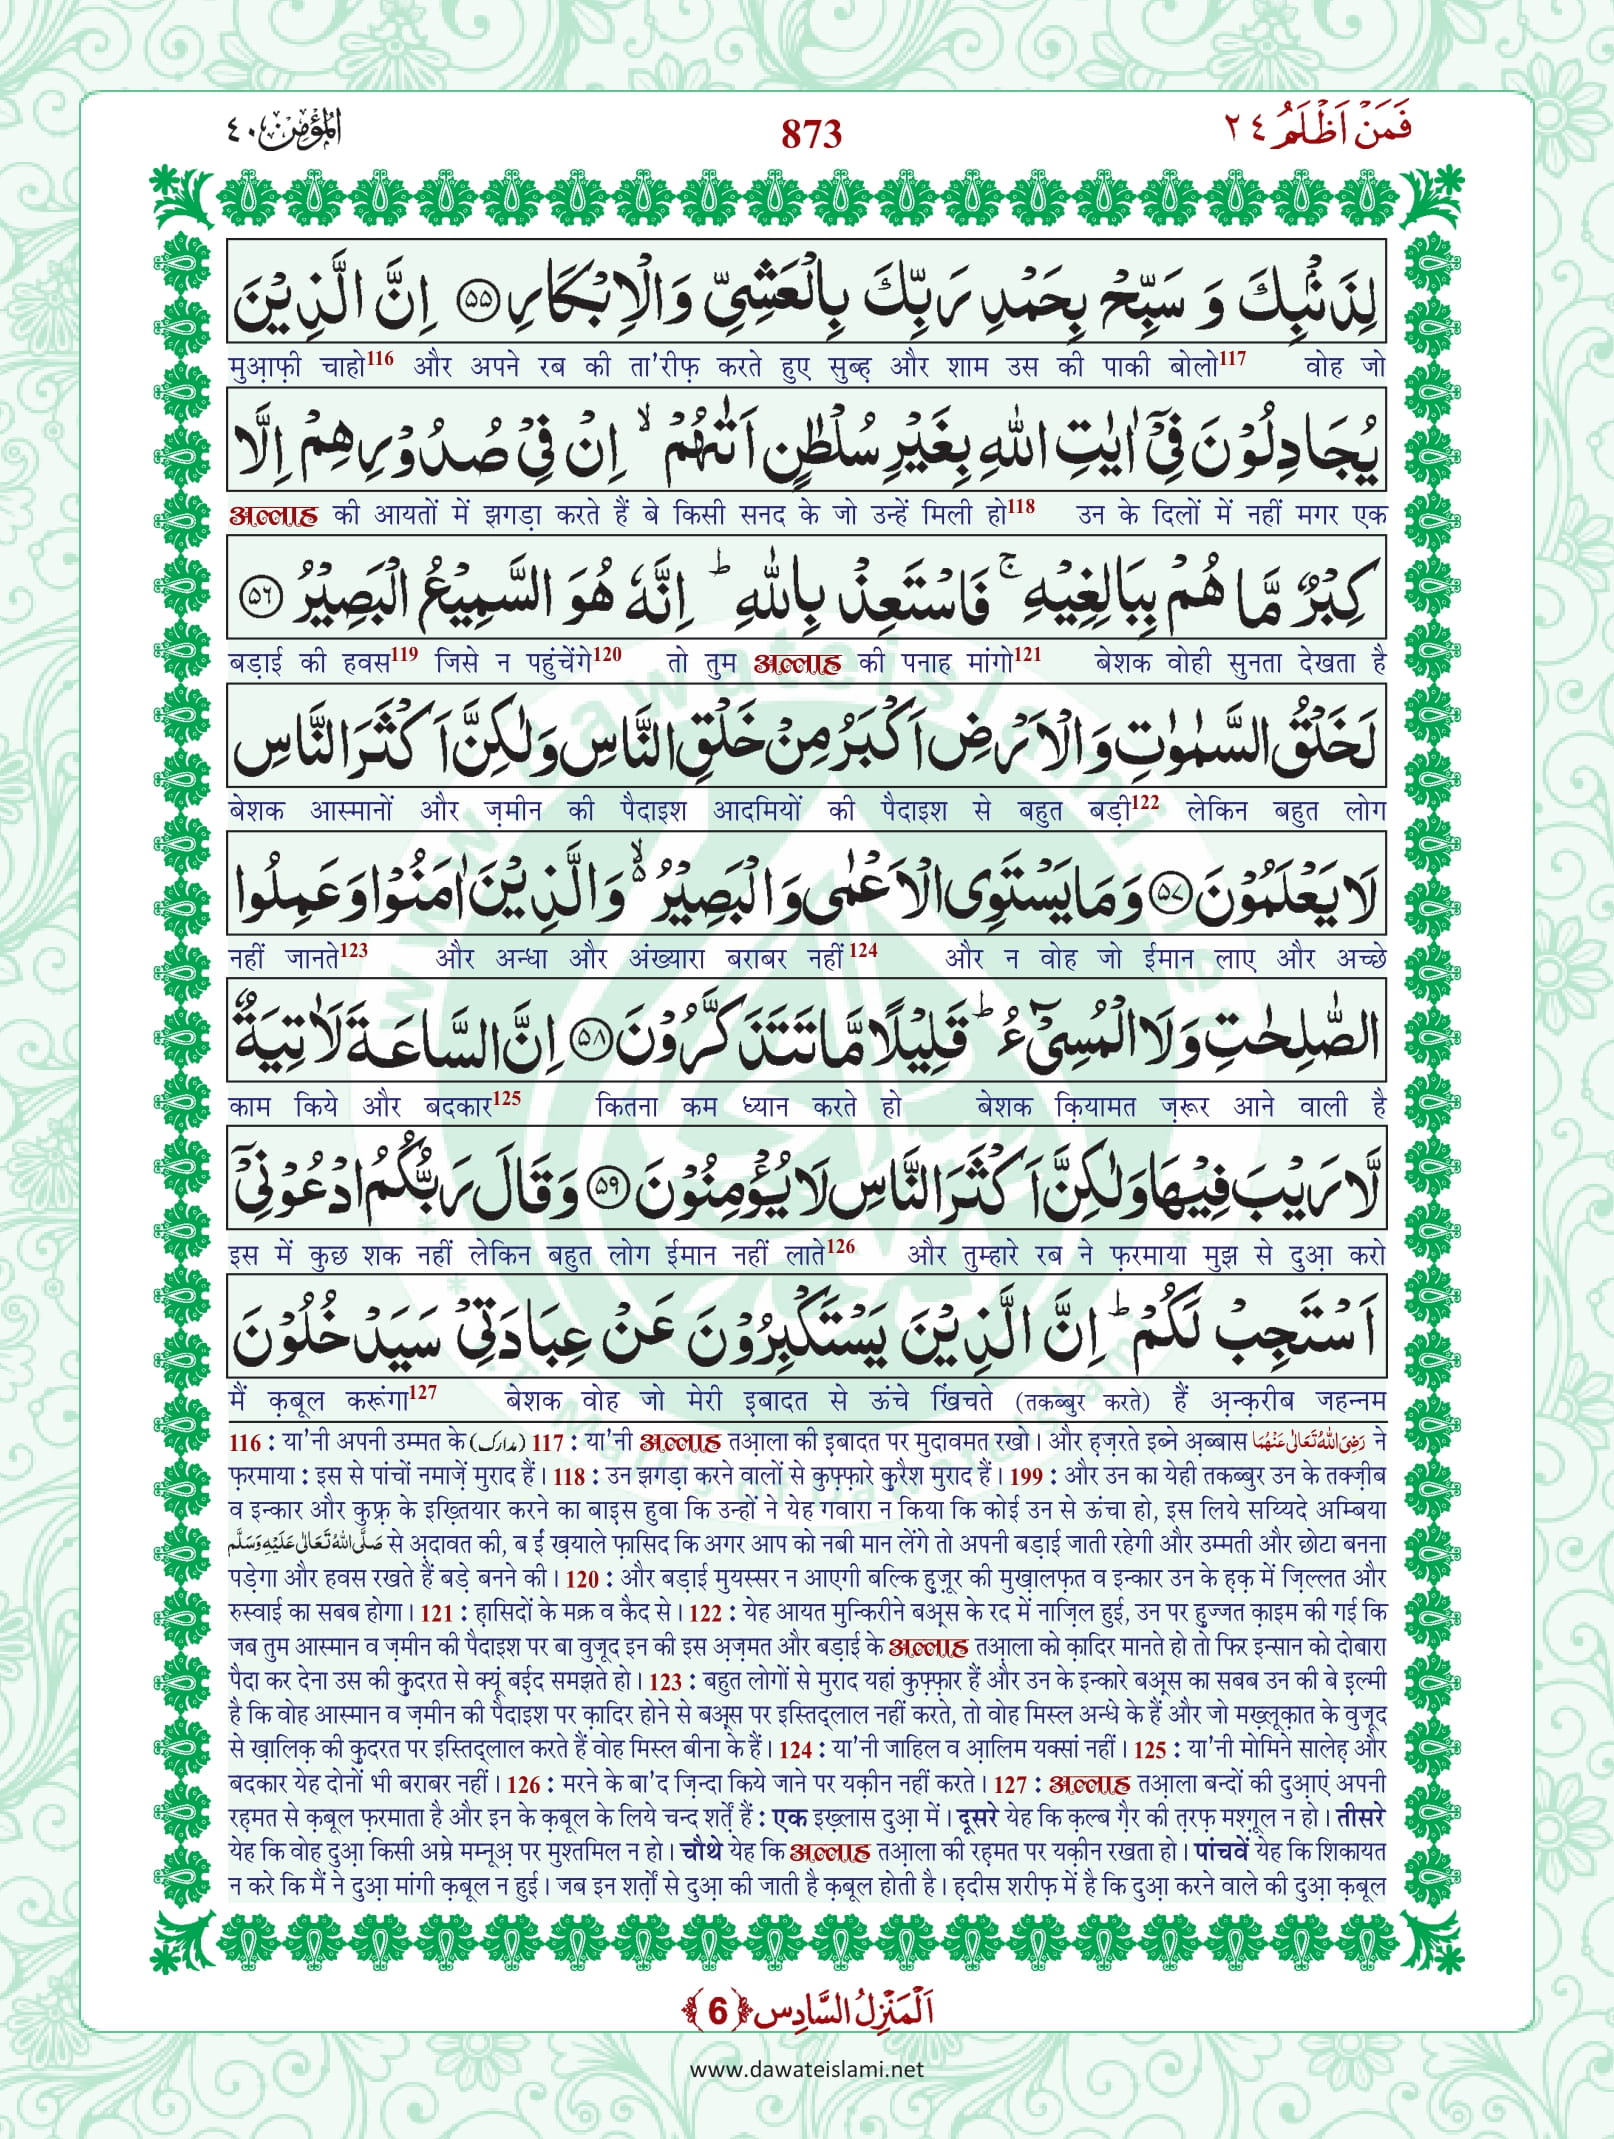 المؤمن ٤٠
873
فَمَنْ اَظْلَمُ ٢٤
لِذَنْۢبِكَ وَ سَبِّحْ بِحَمْدِ رَبِّكَ بِالْعَشِیِّ وَالْاِبْكَارِ ۝۵۵ اِنَّ الَّذِیْنَ
मुआ़फ़ी चाहो116 और अपने रब की ता'रीफ़ करते हुए सुब्ह़ और शाम उस की पाकी बोलो117 वोह जो
یُجَادِلُوْنَ فِیْۤ اٰیٰتِ اللّٰهِ بِغَیْرِ سُلْطٰنٍ اَتٰىهُمْ ۙ اِنْ فِیْ صُدُوْرِهِمْ اِلَّا
अल्लाह की आयतों में झगड़ा करते हैं बे किसी सनद के जो उन्हें मिली हो118 उन के दिलों में नहीं मगर एक
كِبْرٌ مَّا هُمْ بِبَالِغِیْهِ ۚ فَاسْتَعِذْ بِاللّٰهِ ؕ اِنَّهٗ هُوَ السَّمِیْعُ الْبَصِیْرُ ۝۵۶
बड़ाई की हवस119 जिसे न पहुंचेंगे120 तो तुम अल्लाह की पनाह मांगो121 बेशक वोही सुनता देखता है
لَخَلْقُ السَّمٰوٰتِ وَالْاَرْضِ اَكْبَرُ مِنْ خَلْقِ النَّاسِ وَلٰكِنَّ اَكْثَرَ النَّاسِ
बेशक आस्मानों और ज़मीन की पैदाइश आदमियों की पैदाइश से बहुत बड़ी122 लेकिन बहुत लोग
لَا یَعْلَمُوْنَ ۝۵۷ وَمَا یَسْتَوِی الْاَعْمٰى وَالْبَصِیْرُ ۬ۙ وَالَّذِیْنَ اٰمَنُوْا وَعَمِلُوا
नहीं जानते123 और अन्धा और अंख्यारा बराबर नहीं124 और न वोह जो ईमान लाए और अच्छे
الصّٰلِحٰتِ وَلَا الْمُسِیْٓءُ ؕ قَلِیْلًا مَّا تَتَذَكَّرُوْنَ ۝۵۸ اِنَّ السَّاعَةَ لَاٰتِیَةٌ
काम किये और बदकार125 कितना कम ध्यान करते हो बेशक क़ियामत ज़रूर आने वाली है
لَّا رَیْبَ فِیْهَا وَلٰكِنَّ اَكْثَرَ النَّاسِ لَا یُؤْمِنُوْنَ ۝۵۹ وَقَالَ رَبُّكُمُ ادْعُوْنِیْۤ
इस में कुछ शक नहीं लेकिन बहुत लोग ईमान नहीं लाते126 और तुम्हारे रब ने फ़रमाया मुझ से दुआ़ करो
اَسْتَجِبْ لَكُمْ ؕ اِنَّ الَّذِیْنَ یَسْتَكْبِرُوْنَ عَنْ عِبَادَتِیْ سَیَدْخُلُوْنَ
मैं क़बूल करूंगा127 बेशक वोह जो मेरी इबादत से ऊंचे खिंचते (तकब्बुर करते) हैं अ़न्क़रीब जहन्नम
116 : या'नी अपनी उम्मत के (مدارك) 117 : या'नी अल्लाह तआ़ला की इबादत पर मुदावमत रखो। और ह़ज़रते इब्ने अ़ब्बास رَضِیَ اللّٰهُ تَعَالٰی عَنْهُمَا ने
फ़रमाया : इस से पांचों नमाज़ें मुराद हैं। 118 : उन झगड़ा करने वालों से कुफ़्फ़ारे क़ुरैश मुराद हैं। 199 : और उन का येही तकब्बुर उन के तक्ज़ीब
व इन्कार और कुफ़्र के इख़्तियार करने का बाइस हुवा कि उन्हों ने येह गवारा न किया कि कोई उन से ऊंचा हो, इस लिये सय्यिदे अम्बिया
صَلَّی اللّٰهُ تَعَالٰی عَلَیْهِ وَسَلَّم से अ़दावत की, ब ईं ख़याले फ़ासिद कि अगर आप को नबी मान लेंगे तो अपनी बड़ाई जाती रहेगी और उम्मती और छोटा बनना
पड़ेगा और हवस रखते हैं बड़े बनने की। 120 : और बड़ाई मुयस्सर न आएगी बल्कि हुज़ूर की मुख़ालफ़त व इन्कार उन के ह़क़ में ज़िल्लत और
रुस्वाई का सबब होगा। 121 : ह़ासिदों के मक्र व कैद से। 122 : येह आयत मुन्किरीने बअ़्स के रद में नाज़िल हुई, उन पर हुज्जत क़ाइम की गई कि
जब तुम आस्मान व ज़मीन की पैदाइश पर बा वुजूद इन की इस अ़ज़मत और बड़ाई के अल्लाह तआ़ला को क़ादिर मानते हो तो फिर इन्सान को दोबारा
पैदा कर देना उस की क़ुदरत से क्यूं बईद समझते हो। 123 : बहुत लोगों से मुराद यहां कुफ़्फ़ार हैं और उन के इन्कारे बअ़्स का सबब उन की बे इ़ल्मी
है कि वोह आस्मान व ज़मीन की पैदाइश पर क़ादिर होने से बअ़्स पर इस्तिद्लाल नहीं करते, तो वोह मिस्ल अन्धे के हैं और जो मख़्लूक़ात के वुजूद
से ख़ालिक़ की क़ुदरत पर इस्तिद्लाल करते हैं वोह मिस्ल बीना के हैं। 124 : या'नी जाहिल व आ़लिम यक्सां नहीं। 125 : या'नी मोमिने सालेह़ और
बदकार येह दोनों भी बराबर नहीं। 126 : मरने के बा'द ज़िन्दा किये जाने पर यक़ीन नहीं करते। 127 : अल्लाह तआ़ला बन्दों की दुआ़एं अपनी
रह़मत से क़बूल फ़रमाता है और इन के क़बूल के लिये चन्द शर्त़ें हैं : एक इख़्लास दुआ़ में। दूसरे येह कि क़ल्ब ग़ैर की त़रफ़ मश्ग़ूल न हो। तीसरे
येह कि वोह दुआ़ किसी अम्रे मम्नूअ़ पर मुश्तमिल न हो। चौथे येह कि अल्लाह तआ़ला की रह़मत पर यक़ीन रखता हो। पांचवें येह कि शिकायत
न करे कि मैं ने दुआ़ मांगी क़बूल न हुई। जब इन शर्त़ों से दुआ़ की जाती है क़बूल होती है। ह़दीस शरीफ़ में है कि दुआ़ करने वाले की दुआ़ क़बूल
اَلْمَنْزِلُ السَّادِس ﴿6﴾
www.dawateislami.net